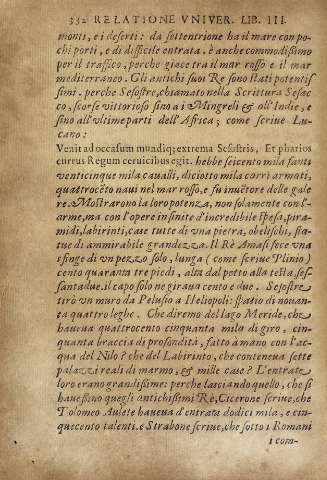 332 RELATIONE VNIVER. LIB. III.
monti, e i deserti: da settentrione ha il mare con po-
chi porti, e di difficile entrata. è anche commodissimo
per il traffico, perche giace tra il mar rosso e il mar
mediterraneo. Gli antichi suoi Re sono stati potentis
simi. perche Sesostre, chiamato nella Scrittura Sesac
co, scorse vittorioso sino a i Mingreli & all'Indie, e
sino all'vltime parti dell'Africa; come scriue Lu-
cano:
Venit ad occasum mundiq; extrema Sesostris, Et pharios
currus Regum ceruicibus egit. hebbe seicento mila fanti
venticinque mila caualli, diciotto mila carri armati,
quattrocēto naui nel mar rosso, e fu inuētore delle gale
re. Mostrarono la loro potenza, non solamente con l'ar-
arme, ma con l'opere infinite d'incredibile spesa, pira-
midi, labirinti, case tutte di vna pietra, obelischi, sta-
tue di ammirabile grandezza. Il Rè Amasi fece vna
sfinge di vn pezzo solo, lunga (come scriue Plinio)
cento quaranta tre piedi, alta dal petto alla testa, ses-
santadue. il capo solo ne giraua cento e due. Sesostre
tirò vn muro da Pelusio a Heliopoli: spatio di nouan-
ta quattro leghe. Che diremo del lago Meride, che
haueua quattrocento cinquanta mila di giro, cin-
quanta braccia di profondità, fatto a mano con l'ac-
qua del Nilo? che del Labirinto, che conteneua sette
palazzi reali di marmo, & mille case? L'entrate
loro erano grandissime: perche lasciando quello, che si
hauessino quegli antichissimi Rè, Cicerone scriue, che
Tolomeo Aulete haueua d'entrata dodici mila, e cin-
quecento talenti. e Strabone scriue, che sotto i Romani
i com-